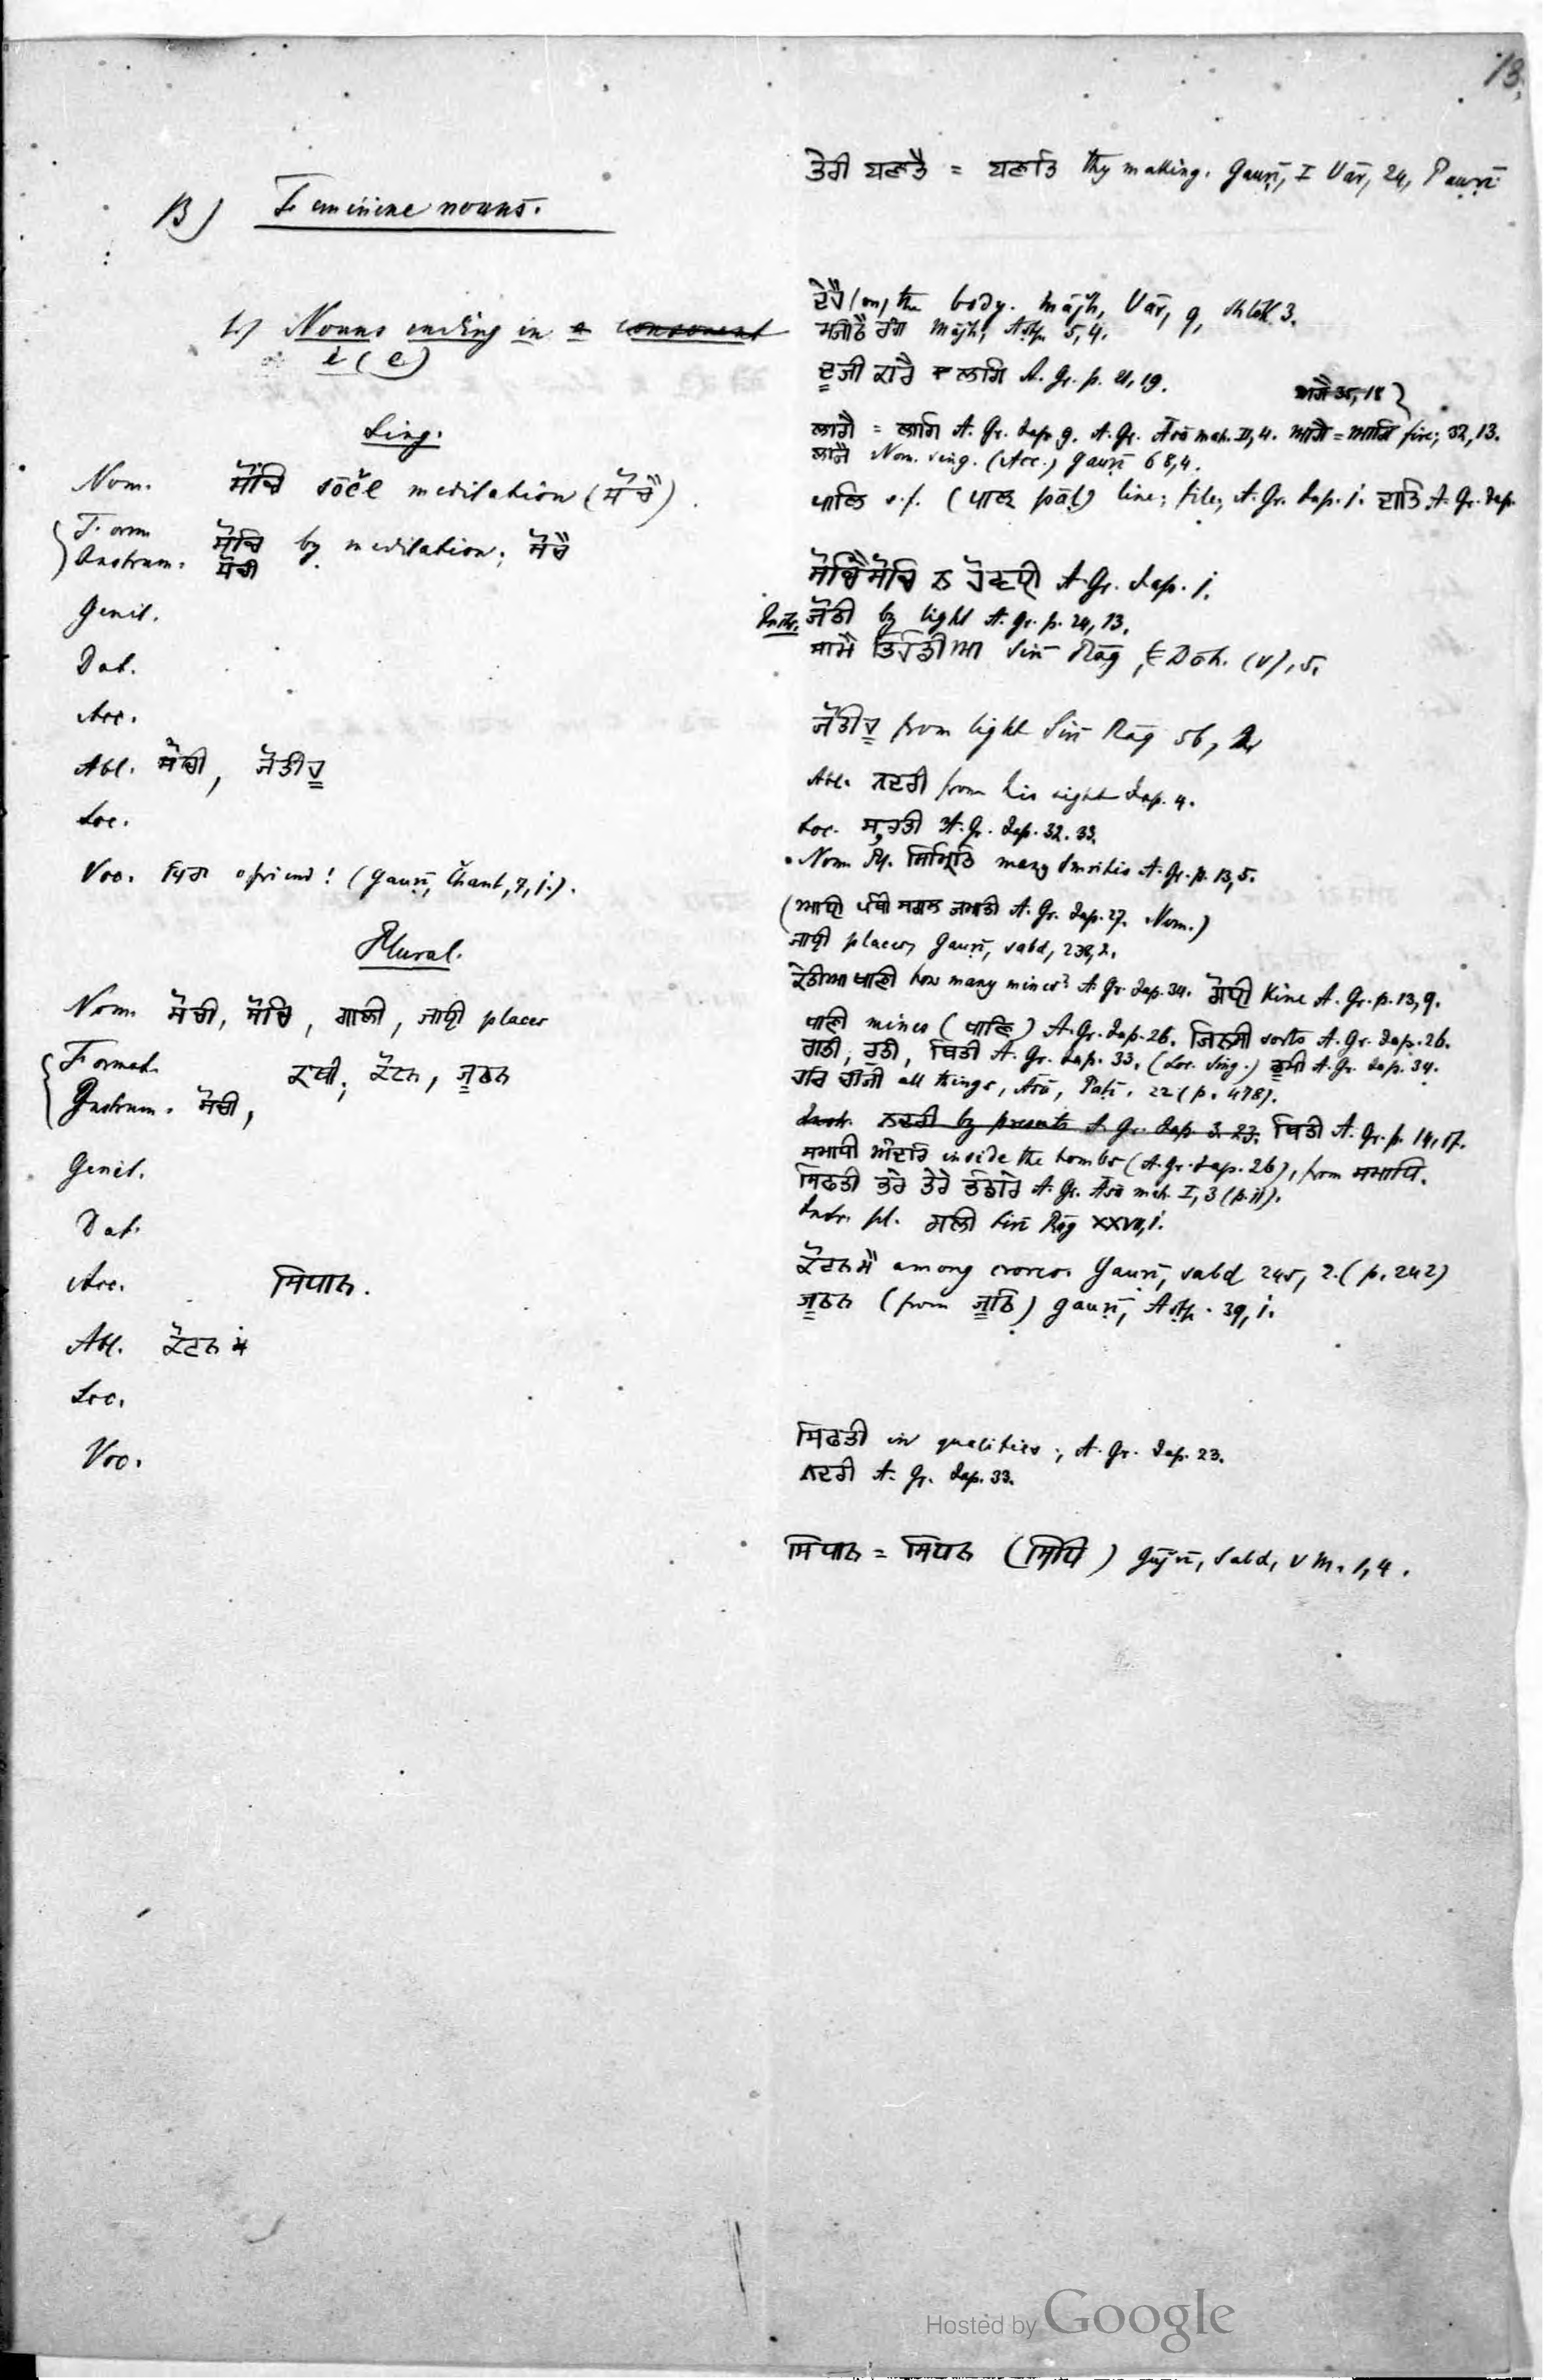 13.
B) Feminine nouns.
1.) Nouns ending in a consonant
i (e)
Sing.
Nom. ਸੋਚਿ sōče meditation (ਸੋਚੈ).
Form.
Instrum. ਸੋਚਿ by meditation; ਸੋਚੈ
ਸੋਚੀ
Genit.
Dat.
Acc.
Abl. ਸੋਚੀ, ਜੋਤੀਹੁ
Loc.
Voc. o friend! (Gauṛī, Čhant, 7, 1.).
Plural.
Nom. ਸੋਚੀ, ਸੋਚਿ, ਗਾਲੀ, ਜਾਈ places
Format.
Instrum. ਸੋਚੀ,
ਕੋਟਨ, ਜੂਠਨ
Genit.
Dat.
Acc. ਸਿਧਾਨ.
Abl. ਕੋਟਨ ਮੈ
Loc.
Voc.
ਤੇਰੀ ਬਣਤੈ = ਬਣਤਿ thy making. Gauṛī, I Vār, 24, Pauṛī
ਦੇਹੈ (on) the body. Mājh, Vār, 9, shlōk 3.
ਮਜੀਠੈ ਰੰਗ Mājh, Ashṭ. 5, 4.
ਦੂਜੀ ਕਾਰੈ ਲਾਗਿ A. Gr. p. 21, 19.
ਅਗੈ 35, 18
ਲਾਗੈ = ਲਾਗਿ A. Gr. Jap. 9. A. Gr. Āsā mah. II, 4. ਆਗੈ = ਆਗਿ fire; 32, 13.
ਲਾਜੈ Nom. sing. (Acc.) Gauṛī 68, 4.
ਪਾਲਿ s.f. (ਪਾਲ pāl) line; file, A. Gr. Jap. 1. ਦਾਤਿ A. Gr. Jap.
ਸੋਚਿੈ ਸੋਚਿ ਨ ਹੋਵਈ A. Gr. Jap. 1.
Instr. ਜੋਤੀ by light A. Gr. p. 24, 13.
Sirī Rāg,
ਜੋਤੀਹੁ from light Sirī Rāg 56, 2
Abl. ਨਦਰੀ from his sight Jap. 4.
Loc. ਸੁਰਤੀ A. Gr. Jap. 32. 33.
Nom. Pl. ਸਿਮ੍ਰਿਤਿ many Smritis A. Gr. p. 13, 5.
(ਆਈ ਪੰਥੀ ਸਗਲ ਜਮਾਤੀ A. Gr. Jap. 27. Nom.)
ਜਾਈ places, Gauṛī, sabd, 238, 2.
ਕੇਤੀਆ ਖਾਣੀ how many mines? A. Gr. Jap. 34. ਗੋਈ Kine A. Gr. p. 13, 9.
ਖਾਣੀ mines (ਖਾਣਿ) A. Gr. Jap. 26. ਜਿਨਸੀ sorts A. Gr. Jap. 26.
ਰਾਤੀ, ਰੁਤੀ, ਥਿਤੀ A. Gr. Jap. 33. (Loc. Sing.) A. Gr. Jap. 34.
ਹਰਿ ਚੀਜੀ all things, Āsā, Paṭī. 22 (p. 478).
Instr. ਨਦਰੀ by presents A. Gr. Jap. 3. 23. ਥਿਤੀ A. Gr. p. 14, 17.
ਸਮਾਧੀ ਅੰਦਰਿ inside the tombs (A. Gr. Jap. 26), from ਸਮਾਧਿ.
ਸਿਫਤੀ ਭਰੇ ਤੇਰੇ ਭੰਡਾਰੇ A. Gr. Āsā mah. I, 3 (p. 11).
Instr. pl. ਗਲੀ Sirī Rāg XXVII, 1.
ਕੋਟਨ ਮੈ among crores. Gauṛī, sabd 245, 2. (p. 242)
ਜੂਠਨ (from ਜੂਠਿ) Gauṛī, Ashṭ. 39, 1.
ਸਿਫਤੀ in qualities; A. Gr. Jap. 23.
ਨਦਰੀ A. Gr. Jap. 33.
ਸਿਧਾਨ = ਸਿਧਨ (ਸਿਧਿ) Gūjrī, Sabd, V M. 1, 4.
Hosted by Google